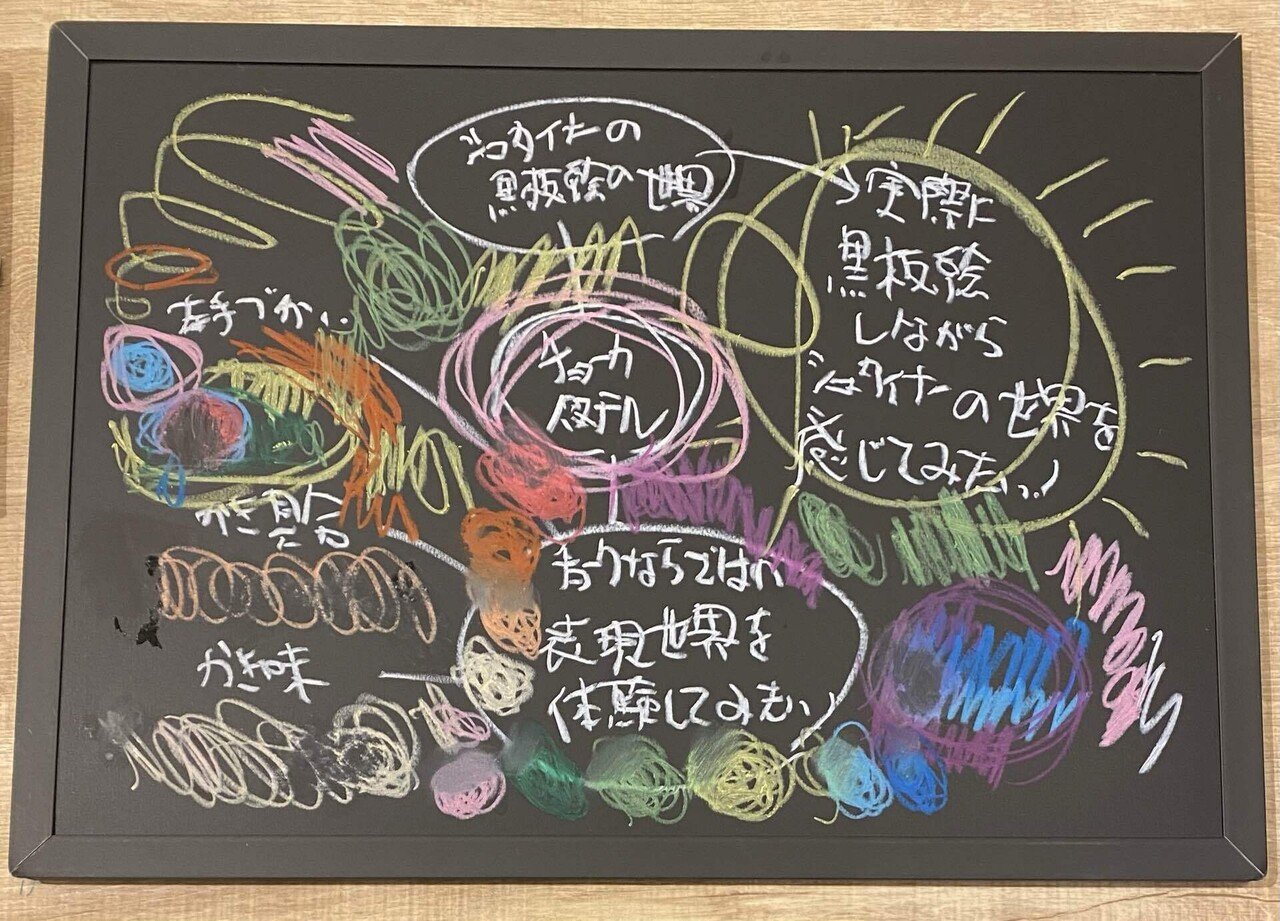 シュタイナーの
黒板絵の世界
実際に
黒板絵
しながら
シュタイナーの世界を
感じてみたい!
手づかい
チョーク
かき具合
チョークならではの
表現世界を
体験してみたい!
かき味